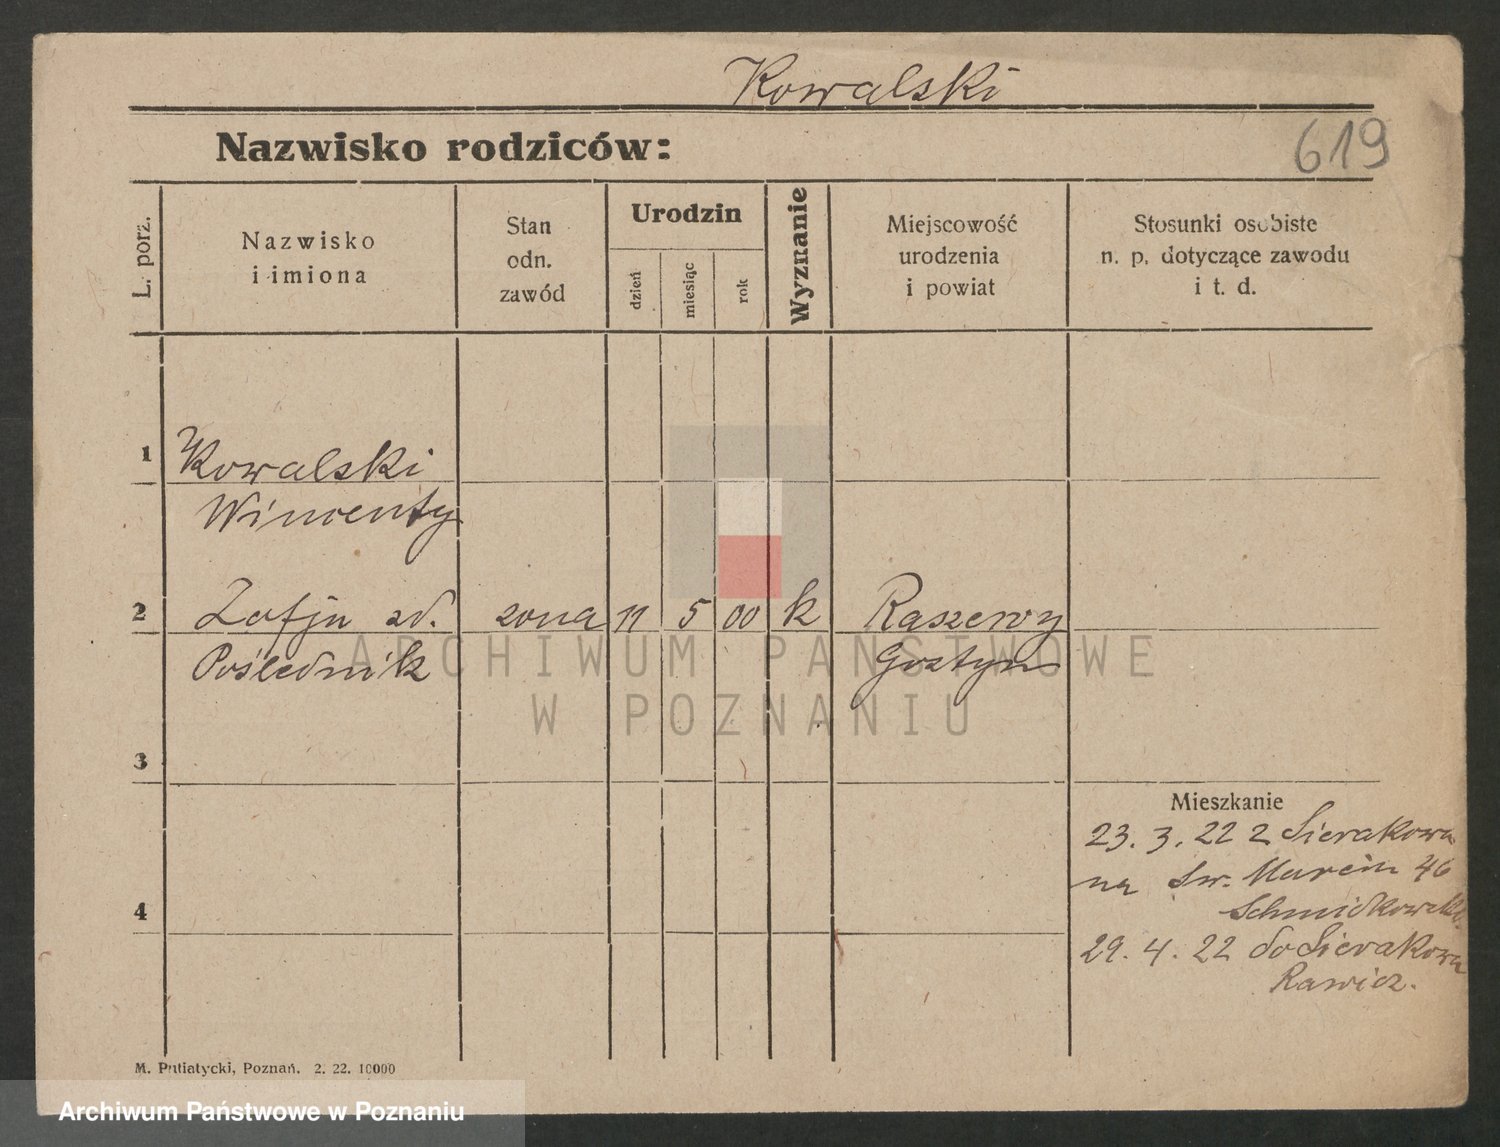 Kowalski
Nazwisko rodziców:
619
L. porz.
Nazwisko
i imiona
Stan
odn.
zawód
Urodzin
dzień
miesiąc
rok
Wyznanie
Miejscowość
urodzenia
i powiat
Stosunki osobiste
n. p. dotyczące zawodu
i t. d.
1
Kowalski
Wincenty
2
Zofja zd. zona 11 5 00 k Raszewy
Poślednik Gostyn
ARCHIWUM PAŃSTWOWE
W POZNANIU
3
Mieszkanie
23. 3. 22 z Sierakowa
na Św. Marcin 46
4
29. 4. 22 do Sierakowa
Rawicz.
M. Putiatycki, Poznań. 2. 22. 10000
Archiwum Państwowe w Poznaniu